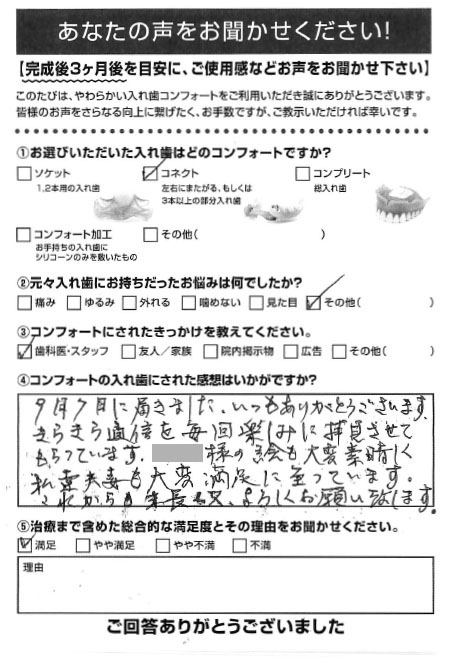 あなたの声をお聞かせください!
【完成後3ヶ月後を目安に、ご使用感などお声をお聞かせ下さい】
このたびは、やわらかい入れ歯コンフォートをご利用いただき誠にありがとうございます。
皆様のお声をさらなる向上に繋げたく、お手数ですが、ご教示いただければ幸いです。
①お選びいただいた入れ歯はどのコンフォートですか?
□ソケット ☑コネクト □コンプリート
1,2本用の入れ歯 左右にまたがる、もしくは 総入れ歯
3本以上の部分入れ歯
□コンフォート加工 □その他( )
お手持ちの入れ歯に
シリコーンのみを敷いたもの
②元々入れ歯にお持ちだったお悩みは何でしたか?
□痛み □ゆるみ □外れる □噛めない □見た目 ☑その他( )
③コンフォートにされたきっかけを教えてください。
☑歯科医・スタッフ □友人/家族 □院内掲示物 □広告 □その他( )
④コンフォートの入れ歯にされた感想はいかがですか?
9月7日に届きました。いつもありがとうございます。
きらきら通信を毎回楽しみに拝見させて
もらっています。 様の絵も大変素晴しく
私共夫妻も大変満足に至っています。
これからも よろしくお願い致します。
⑤治療まで含めた総合的な満足度とその理由をお聞かせください。
☑満足 □やや満足 □やや不満 □不満
理由
ご回答ありがとうございました